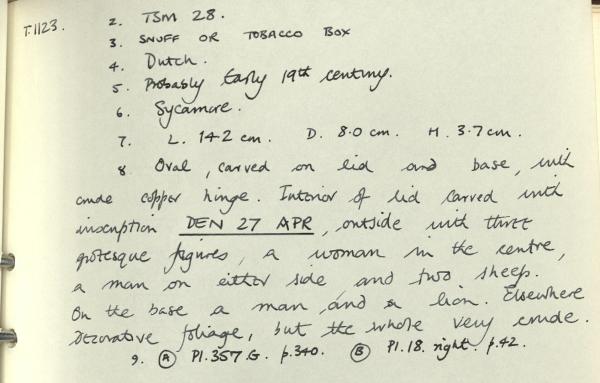 T.1123.
2. TSM 28.
3. SNUFF OR TOBACCO BOX
4. Dutch.
5. Probably Early 19th century.
6. Sycamore.
7. L. 14·2 cm. D. 8·0 cm. H. 3·7 cm.
8 Oval, carved on lid and base, with
crude copper hinge. Interior of lid carved with
inscription DEN 27 APR, outside with three
grotesque figures, a woman in the centre,
a man on either side, and two sheep.
On the base a man and a lion. Elsewhere
decorative foliage, but the whole very crude.
9. A Pl. 357. G. p. 340. B Pl. 18. right. p. 42.